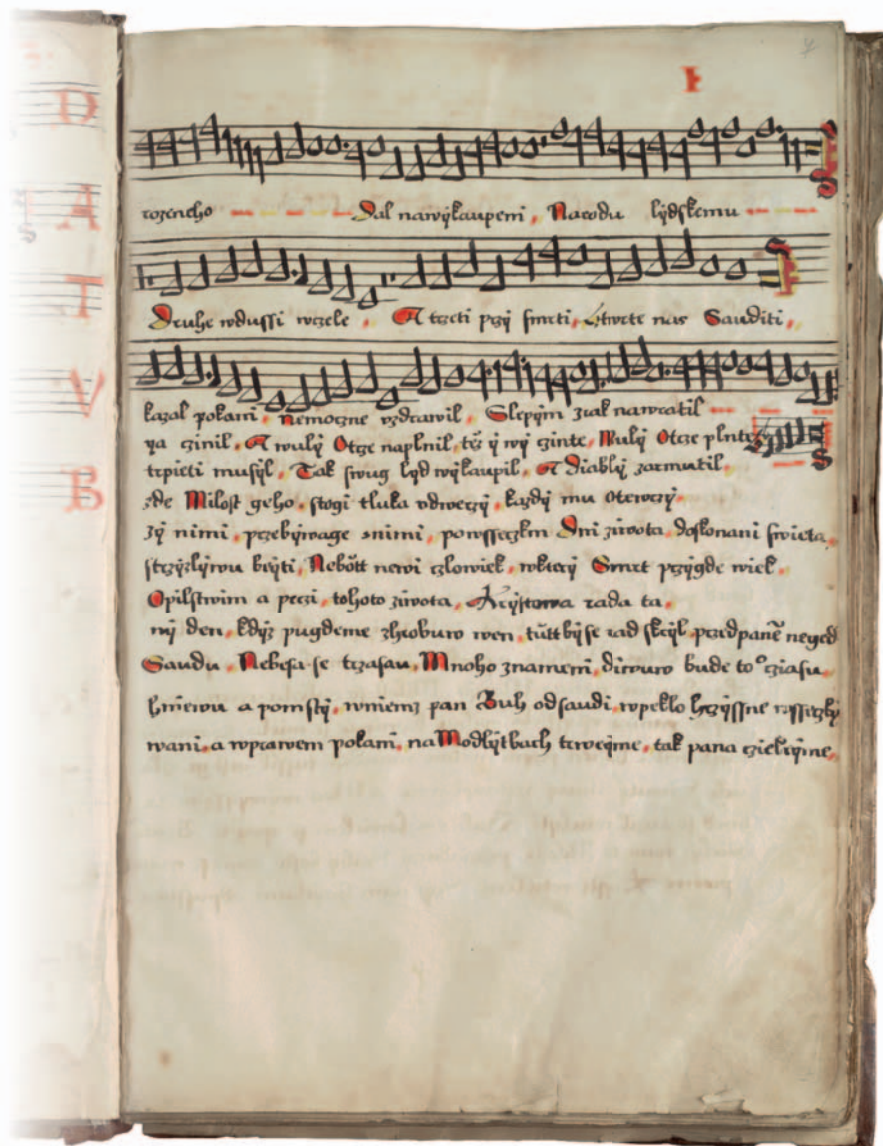 I
rozeneho Dal nawýkaupeni, Narodu lýdskemu
Druhe wdussi wczele, A trzeti przý smrti, Cztwrte nas Sauditi,
kazal pokani, nemoczne vzdrawil, Slepým zrak nawratil
ginil, A wulý Otcze naplnil, ý wý czinte, Wulý Otcze plnte
trpieti musýl, Tak swug lýd wýkaupil, A diablý zarmutil.
zde Milost geho, stogi tluka vdwerzý, každý mu otewrzý.
zý nimi, przebýwage snimi, powsseczkm Dni žiwota, dokonani swieta.
brýti, Nebott newi czlowiek, wkterý Smrt przýgde wiek.
Opilstwim a peczi, tohoto žiwota, Krýstowa rada ta.
ný den, kdýž pugdeme zhrobuw wen, se rad skrýl, przed
Saudu, Nebesa se trzasau, Mnoho znameni, diwuw bude to° cziasu.
hniewu a pomstý, wniemz pan Buh odsaudi, wpeklo hrzýssne wsseczký
wani, a wprawem pokani, na Modlýtbach trweýme, tak pana cziekeýme,
D
A
T
V
R